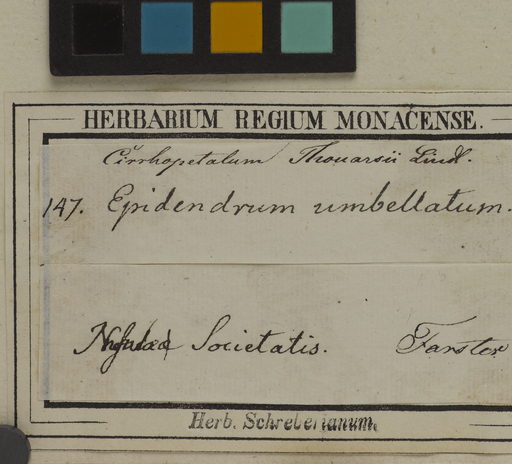 HERBARIUM REGIUM MONACENSE.
Cirrhopetalum Thouarsii Lindl.
147. Epidendrum umbellatum.
Societatis. Forster
Herb. Schreberianum.